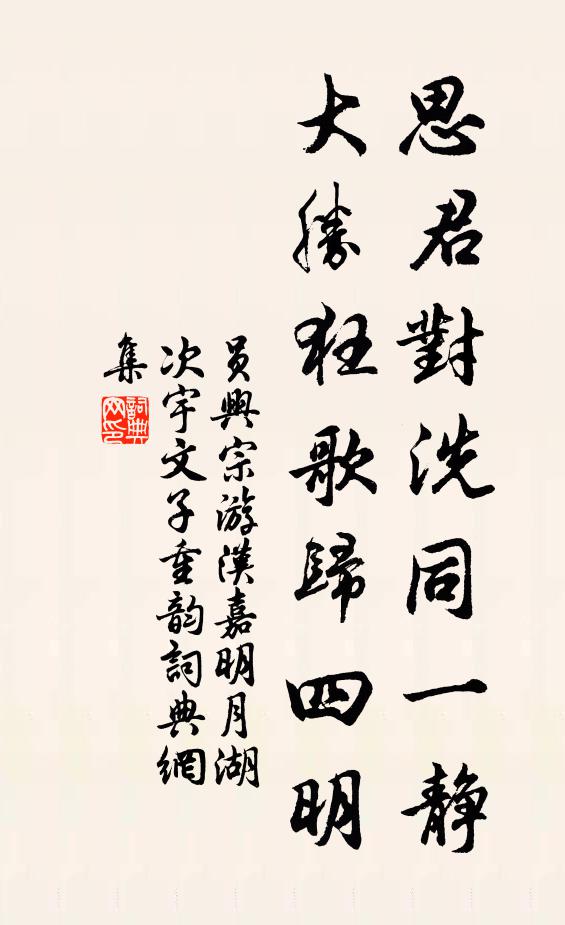 思君對洗同一静
大勝狂歌歸四明
員興宗游漢嘉明月湖
次宇文子重韵詞典網
集
詞典
网印